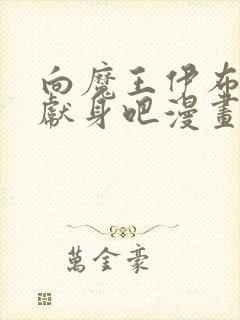 向魔王伊布
獻身吧漫畫
萬金豪